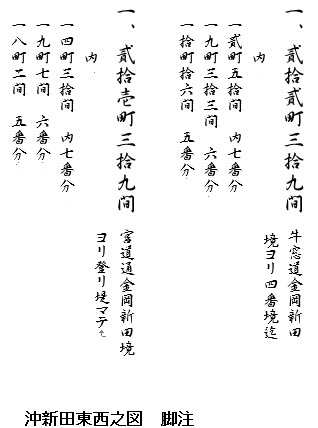 一、貳拾貳町三拾九间
牛窓道金岡新田
境ヨリ四番境迄
内
一貳町五拾间　内七番分
一九町三拾三间　六番分
一拾町拾六间　五番分
一、貳拾壱町三拾九间
宮道通金岡新田境
ヨリ登リ堤マテ
内
一四町三拾间　内七番分
一九町七间　六番分
一八町二间　五番分
沖新田東西之図　脚注